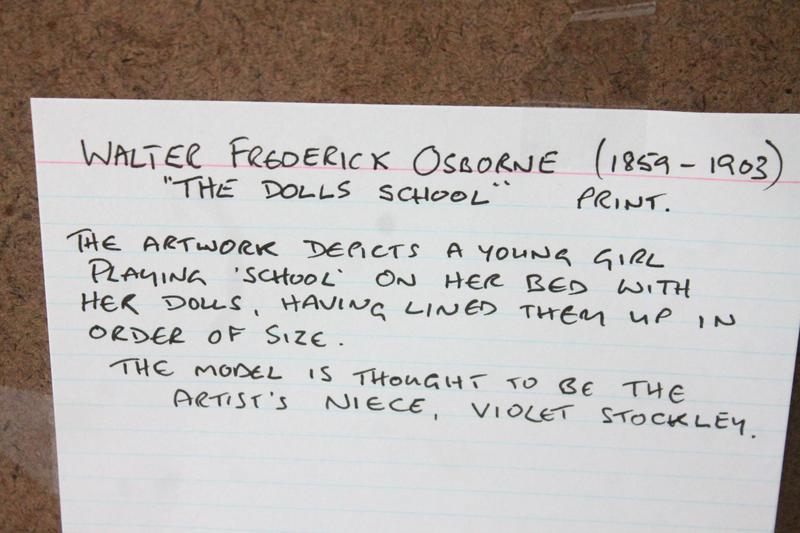 WALTER FREDERICK OSBORNE (1859 - 1903)
"THE DOLLS SCHOOL" PRINT.
THE ARTWORK DEPICTS A YOUNG GIRL
PLAYING 'SCHOOL' ON HER BED WITH
HER DOLLS, HAVING LINED THEM UP IN
ORDER OF SIZE.
THE MODEL IS THOUGHT TO BE THE
ARTIST'S NIECE, VIOLET STOCKLEY.